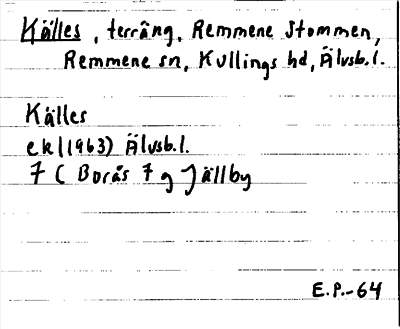 Källes, terräng. Remmene Stommen,
Remmene sn, Kullings hd, Älvsb.l.
Källes
ekl(1963) Älvsb.l.
7 ( Borås 7 g Jällby
E.P.-64